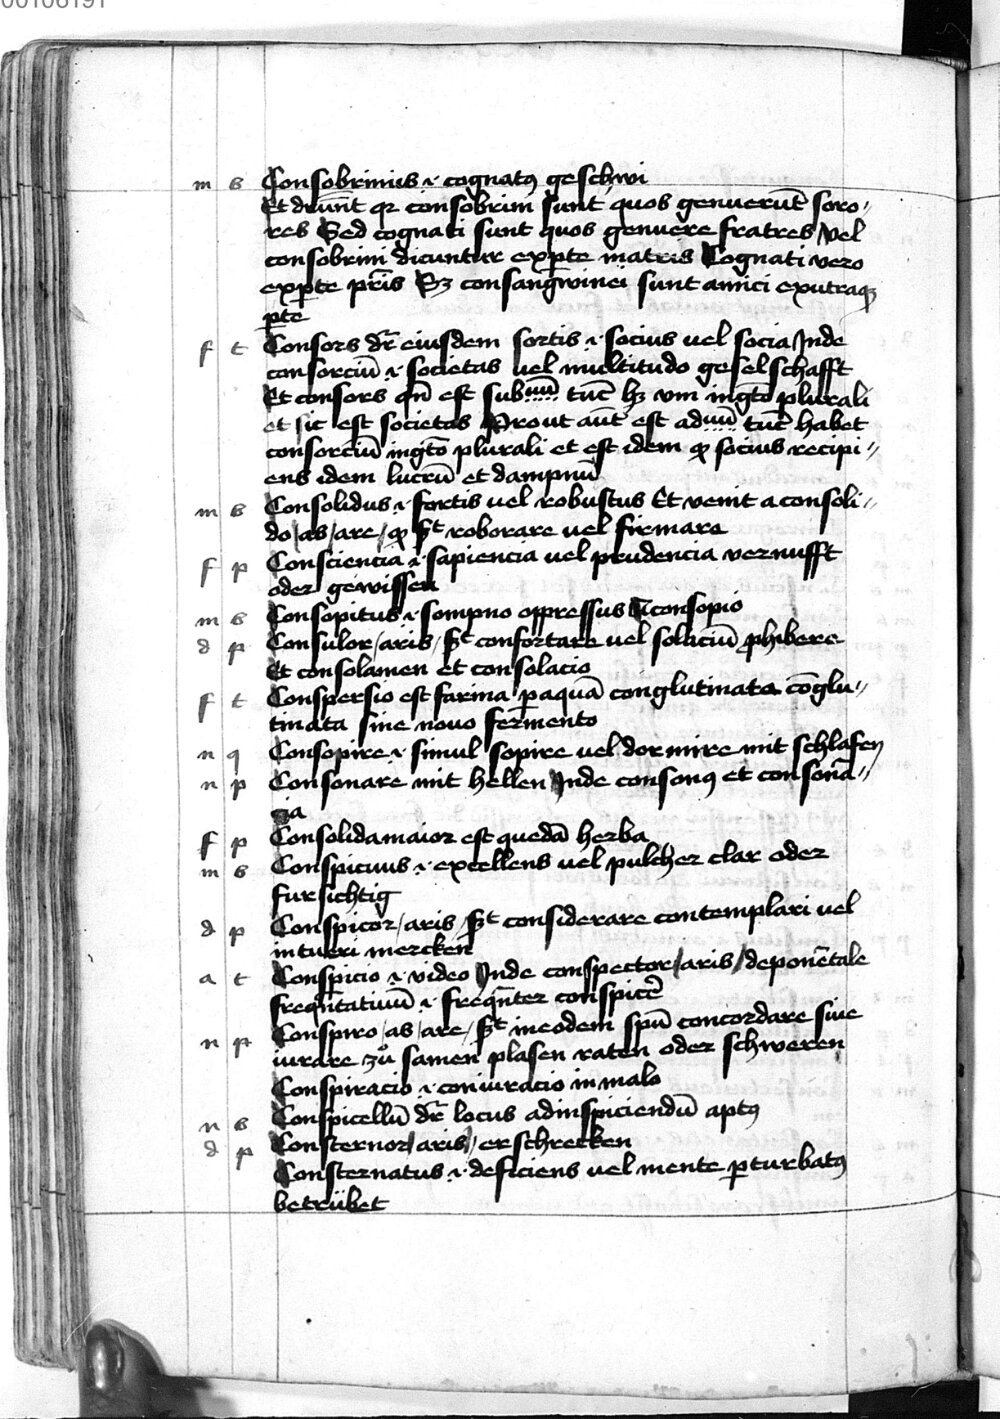 00106191
m s Consobrinus .i. cognatꝰ geschwi
Et dr̄unt qꝛ consobrini sunt quos genuerūt soro〃
res Sed cognati sunt quos genuere fratres Vel
consobrini dicuntur exꝑte matris Cognati vero
exꝑte pr̄is Sꝫ consangwinei sunt amici exutraqꝫ
ꝑte
f t Consors dr̄ eiusdem sortis .i. socius uel socia Inde
consorciū .i. societas uel multitudo geselschafft
Et consors qn̄ est sub tūc hꝫ vm ingto plurali
et sic est societas Prout aūt est ad tūc habet
consorciū ingto plurali et est idem qͦ socius recipi〃
ens idem lucrū et dampnū
m s Consolidus .i. fortis uel robustus Et venit a consoli〃
do/as/are/ qͦ st roborare uel firmare
f p Consciencia .i. sapiencia uel prudencia vernufft
oder gewissen
m s Consopitus .i. sompno oppressus a consopio
d p Consulor/aris/ st confortare uel solaciū ꝓhibere
Et consolamen et consolacio
f t Conspersio est farina ꝑ aquā conglutinata cōglu〃
tinata sine nouo fermento
n q Consopire .i. simul sopire uel dormire mit schlafen
n p Consonare mit hellen Inde consonꝰ et consonā〃
cia
f p Consolida maior est quedā herba
m s Conspicuus .i. excellens uel pulcher clar oder
fursichtig
d p Conspicor/aris/ st considerare contemplari uel
intueri mercken
a t Conspicio .i. video Inde conspector/aris/deponētale
freqn̄tatiuū .i. freqn̄ter conspicē
n p Conspiro/as/are/ st in eodem spū concordare siue
iurare zů samen plasen raten oder schweren
Conspiracio .i. coniuracio in malo
n s Conspicellū dr̄ locus ad inspiciendū aptꝰ
d p Consternor/aris/ erschrecken
Consternatus .i. deficiens uel mente ꝑturbatꝰ
betrübet